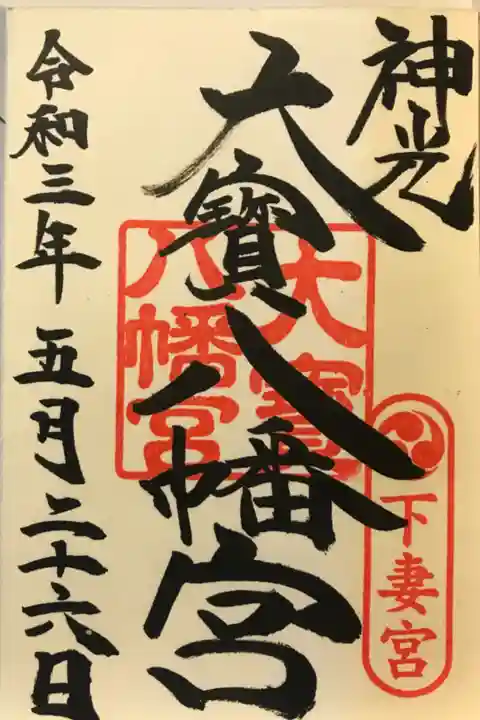 神光
大寳八幡宮
令和三年五月二十六日
大寳
八幡宮
下妻宮